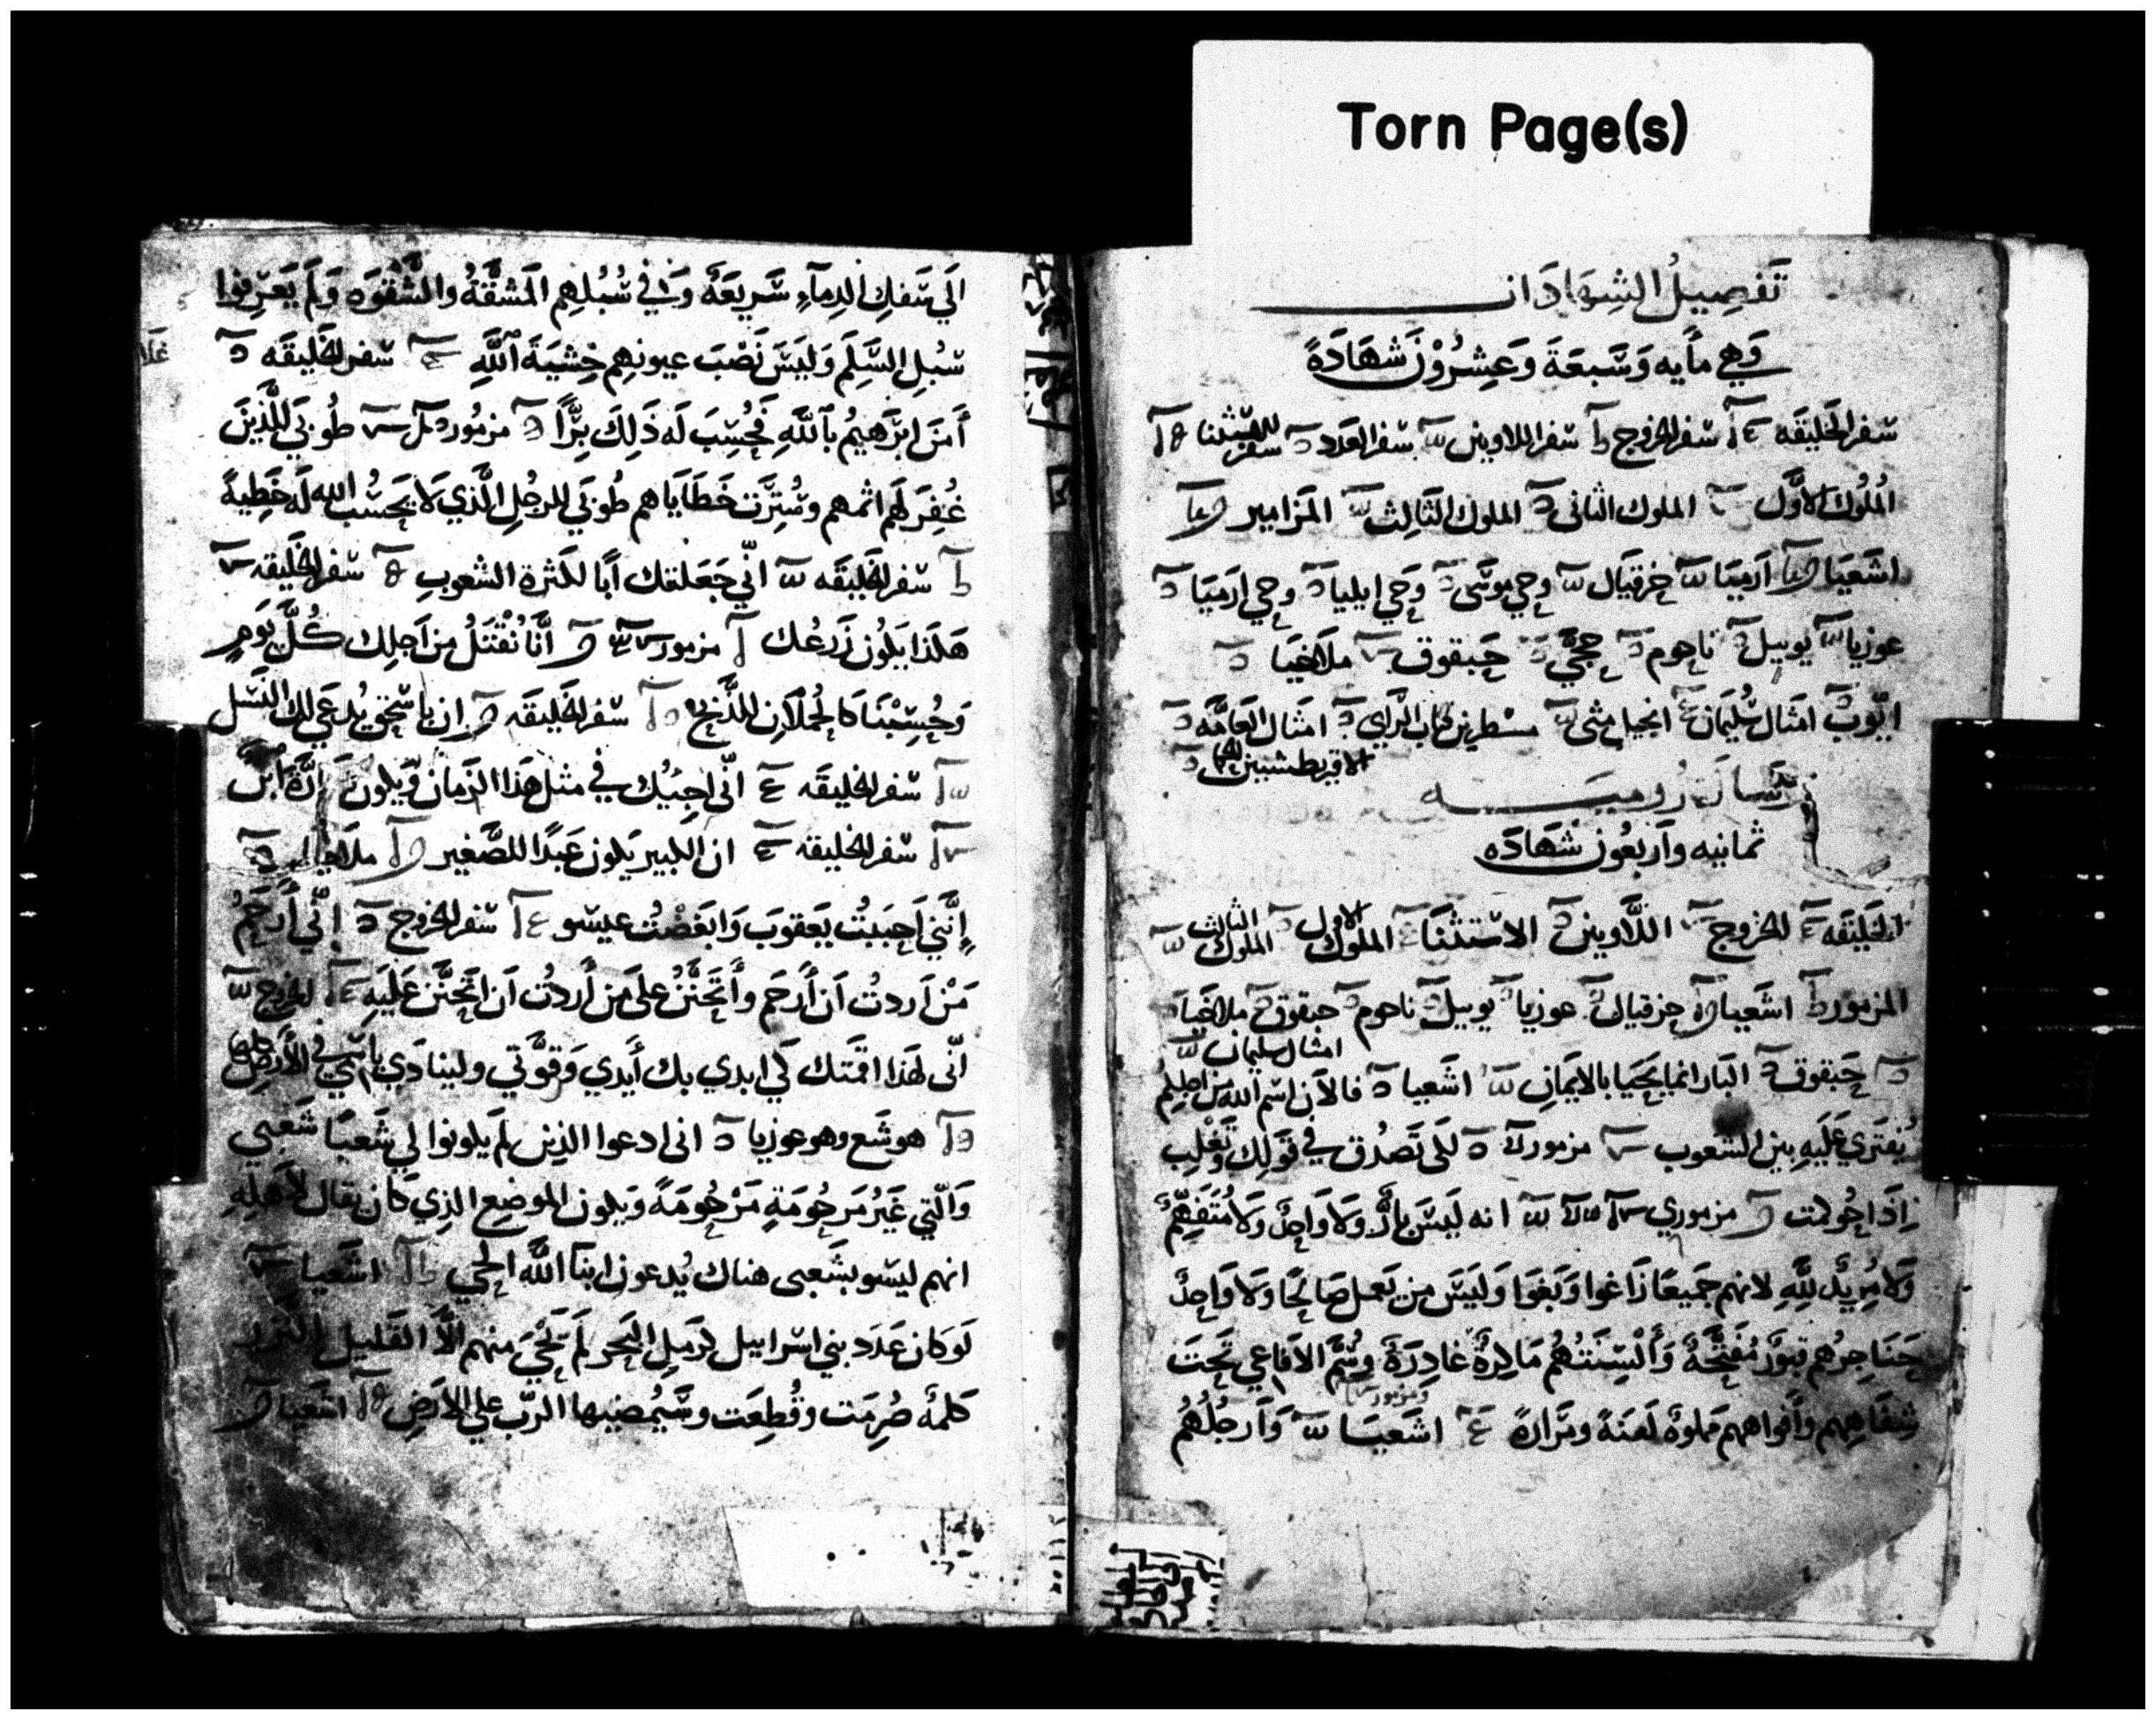 Torn Page(s)
تَفصِيلُ الشِهَادَات
وَهي مأيه وَسَبعَةَ وَعِشرُوْنَ شهَادَةً
سفر الخَليقَه سفر الخروج سفر اللاويين سفر العدد سفر
المُلُوك الأوَّل الملوك الثانى الملوك الثَالِث المَزَامير
اشَعيَا ارَميَا حزقيَال وحي موسَى وَحي ايليا وحي ارَميَا
عوزيا يوييل ناحوم حجَّي حَبقوق ملاخيَا
ايّوب امثَال سُليمَان انجيل متى امثَال العَامَّه
الاقريطشيين
رسَالَة روميَه
ثمانيه وَاربعُون شهَادَه
الخليقَه الخروج اللَّاويين الاستثنَا الملوك الاول الملوك الثالث
المزمور اشَعيا حزقيال عوزيا يوييل ناحوم حبقوق ملاخيَا
امثال سليمان
حَبَقوق البَار انما يَحيَا بالايمَانِ اشَعيا فالآن اسم الله من اجلِكُم
يُفتَري عَليَهِ بين الشعوب مزمور لكَى تَصدُق في قَولِك وَتَغْلِب
اِذَا حُوكمت مزموري انه لَيسَ بارٌّ وَلا وَاحِدٌ وَلا مُتَفهِّمٌ
وَلا مُرِيدٌ للَّهِ لانهم جَميعًا زَاغوا وَبَغوَا وَلَيسَ مَن يَعمل صَالحًا وَلا وَاحِدٌ
حَنَاجِرُهم قبورٌ مُفَتَّحَةٌ وَأَلْسِنَتُهُم مَاكِرَةٌ غادِرَةٌ وَسُمُّ الأفَاعي تَحتَ
ومزمور
شِفَاهِهِم وَأفواههم مملوةٌ لَعنَةً ومَرَارَةً اشَعيَا وَأَرجُلُهُم
الَي سَفك الدِمآءِ سَريعَةٌ وَفي سُبُلِهِم المَشقَّةُ والشَّقْوَه وَلَم يَعَرِفوا
سُبُل السَّلم وَليَسَ نَصْبَ عيونِهِم خِشيَةَ ٱللَّهِ سفر الخليقَه
أمَنَ ابرَهيمُ بٱللَّهِ فحُسِبَ لَه ذَلِكَ بِرًّا مزمور طُوبَي للَّذِينَ
غُفِرَ لَهُم اثمهم وسُتِرَت خَطَايَاهم طُوبَي للرجُلِ الَّذي لا يَحَسُب الله لَه خَطِيةً
سفر الخليقَه انّي جَعَلتك أبًا لكَثرة الشعوبِ سفر الخَليقه
هَكذَا يَكُون زَرعُك مزمور أنَّا نُقْتَلُ من اَجلِك كُلَّ يَومٍ
وَحُسِبْنَا كَالحُملَانِ للذَّبحِ سفر الخَليقَه ان باسحَق يُدعَى لك النَسْل
سفر الخليقَه انّي اجيُك في مثل هَذا الزَمان وَيكون
سفر الخليقه ان الكبير يَكون عَبدًا للصَّغير ملاخيا
اِنَّني اَحبَبتُ يَعَقوبَ وَابغَضْتُ عيسو سفر الخروج إنّي أَرحَمُ
مَنْ اَردتُ اَن أَرحَم وأَتَحَنَّنُ عَلى مَن أَردتُ اَن اتحَنَّن عَلَيهِ الخروج
انّى لهَذا اقمتك كَي ابدي بك أيَدي وَقوَّتي ولينادَي باسمي في الأَرضِ كلها
هوشَع وهو عوزيا انى ادعوا الذِين لَم يكونوا لي شَعبًا شَعبي
وَالَّتي غَيرُ مَرحُومَةٍ مَرْحُومَةً وَيكون الموضِع الذِي كَان يقال لأهلِهِ
انهم ليسو بشَعبى هناك يُدعون ابنآ اللَّه الحَي اشَعيا
لَو كان عَدَد بني اسرَاييل كرَملِ البَحر لَم يَنْجي منهم الَّا القَليل
كَلمة صُرِمَت وقُطِعَت وسَيُمضيها الربّ علي الأرضِ اشَعيا